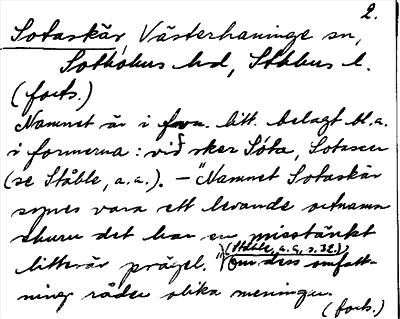 2.
Sotaskär, Västerhaninge sn,
Sotholms hd, Sthlms l.
(forts.)
Namnet är i fvn. litt. belagt bl.a.
i formerna: við sker Sóta, Sotascer
(se Ståhle, a.a.). – "Namnet Sotaskär
synes vara ett levande ortnamn
ehuru det har en misstänkt
litterär prägel." (Ståhle, a.a., s.32.) Om dess omfatt-
ning råder olika meningar.
(forts.)